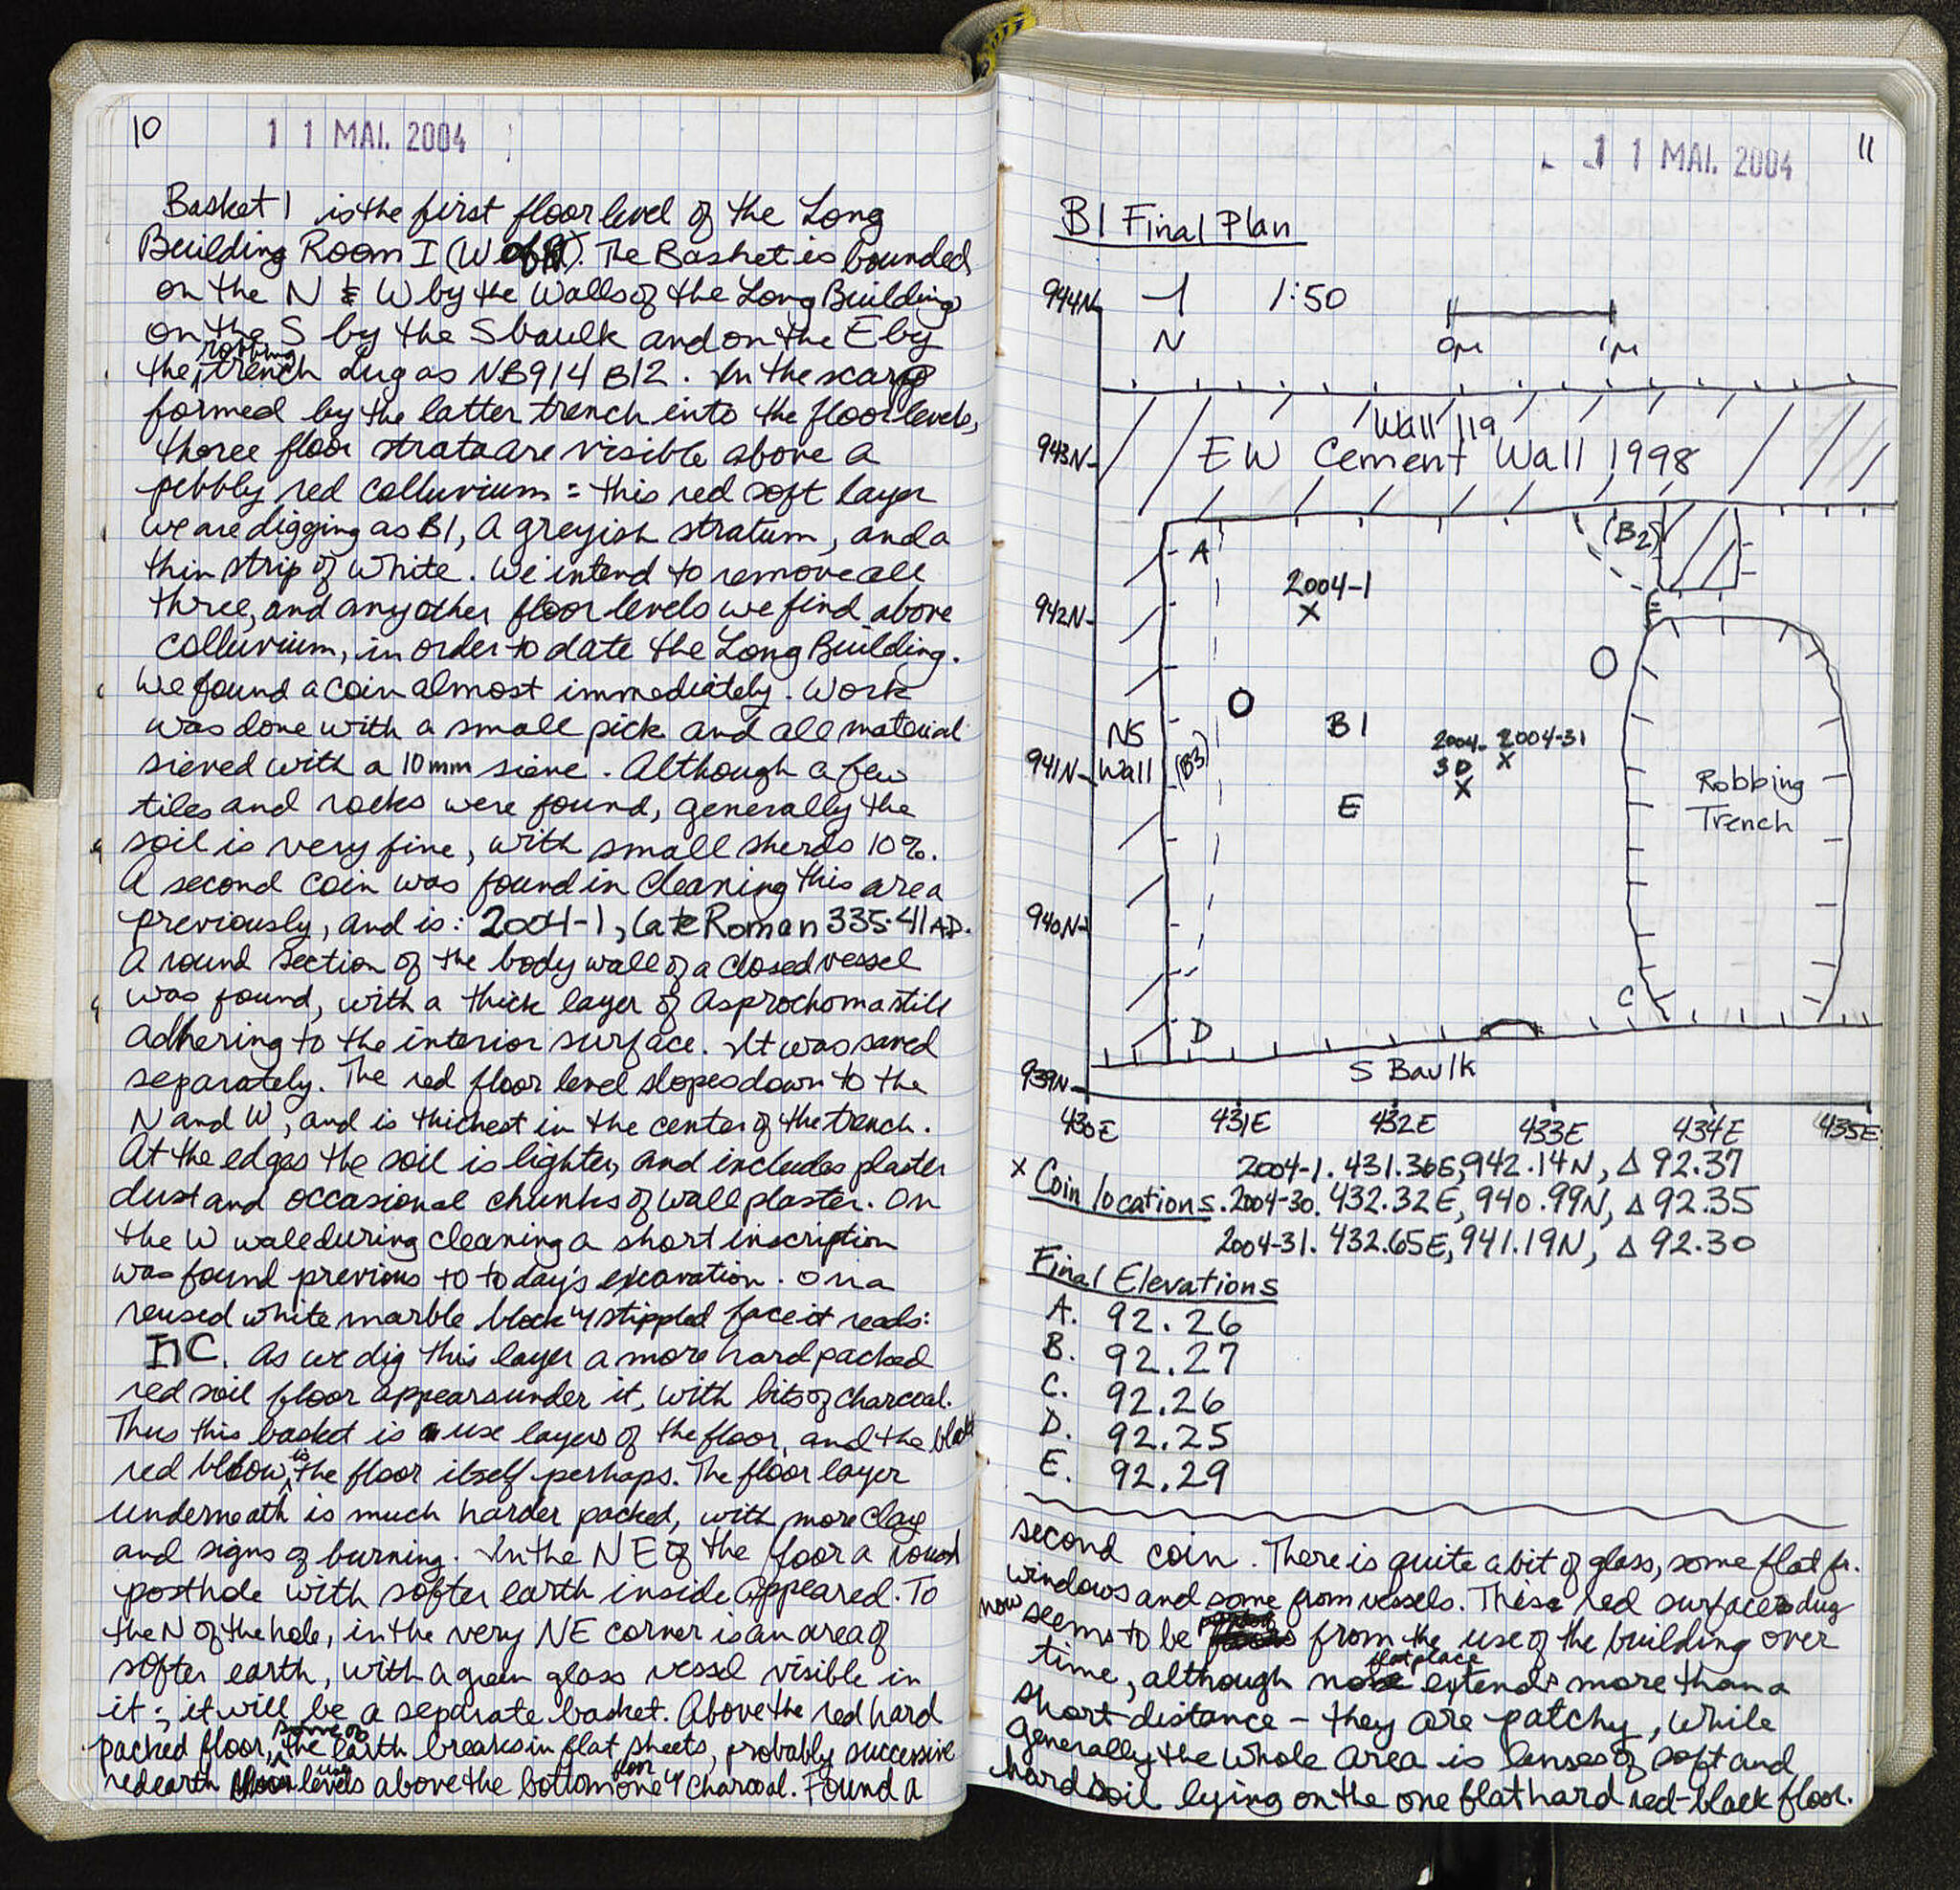 10
11 MAI. 2004
Basket 1 is the first floor level of the Long
Building Room I (W of). The Basket is bounded
on the N & W by the Walls of the Long Building
on the S by the S baulk and on the E by
the robbing trench dug as NB914 B12. In the scarp
formed by the latter trench into the floor levels,
three floor strata are visible above a
pebbly red colluvium = this red soft layer
we are digging as B1, A greyish stratum, and a
thin strip of white. We intend to remove all
three, and any other floor levels we find above
colluvium, in order to date the Long Building.
We found a coin almost immediately. Work
was done with a small pick and all material
sieved with a 10mm sieve. Although a few
tiles and rocks were found, generally the
soil is very fine, with small sherds 10%.
A second coin was found in cleaning this area
previously, and is: 2004-1, Late Roman 335-41 A.D.
A round section of the body wall of a closed vessel
was found, with a thick layer of asprochoma still
adhering to the interior surface. It was saved
separately. The red floor level slopes down to the
N and W, and is thickest in the center of the trench.
At the edges the soil is lighter, and includes plaster
dust and occasional chunks of wall plaster. On
the W wall during cleaning a short inscription
was found previous to today's excavation. On a
reused white marble block w/ stippled face it reads:
As we dig this layer a more hard packed
red soil floor appears under it, with bits of charcoal.
Thus this basket is use layers of the floor, and the black
red below, is the floor itself perhaps. The floor layer
underneath is much harder packed, with more clay
and signs of burning. In the NE of the floor a round
posthole with softer earth inside appeared. To
the N of the hole, in the very NE corner is an area of
softer earth, with a green glass vessel visible in
it; it will be a separate basket. Above the red hard
packed floor, some of the earth breaks in flat sheets, probably successive
red earth use levels above the bottom one floor w/ charcoal. Found a
11 MAI. 2004
11
B1 Final Plan
944N
N
1:50
0M
1M
Wall 119
943N
EW Cement Wall, 1998
A
(B2)
2004-1
X
942N
B1
NS
Wall
(B3)
2004-
30
X
2004-31
X
941N
E
Robbing
Trench
940N
C
D
S Baulk
939N
430E
431E
432E
433E
434E
435E
2004-1. 431.36E, 942.14N, Δ 92.37
x Coin locations. 2004-30. 432.32E, 940.99N, Δ 92.35
2004-31. 432.65E, 941.19N, Δ 92.30
Final Elevations
A. 92.26
B. 92.27
C. 92.26
D. 92.25
E. 92.29
second coin. There is quite a bit of glass, some flat fr.
windows and some from vessels. This red surface dug
now seems to be from the use of the building over
time, although no flat place extends more than a
short distance - they are patchy, while
generally the whole area is lenses of soft and
hard soil lying on the one flat hard red-black floor.